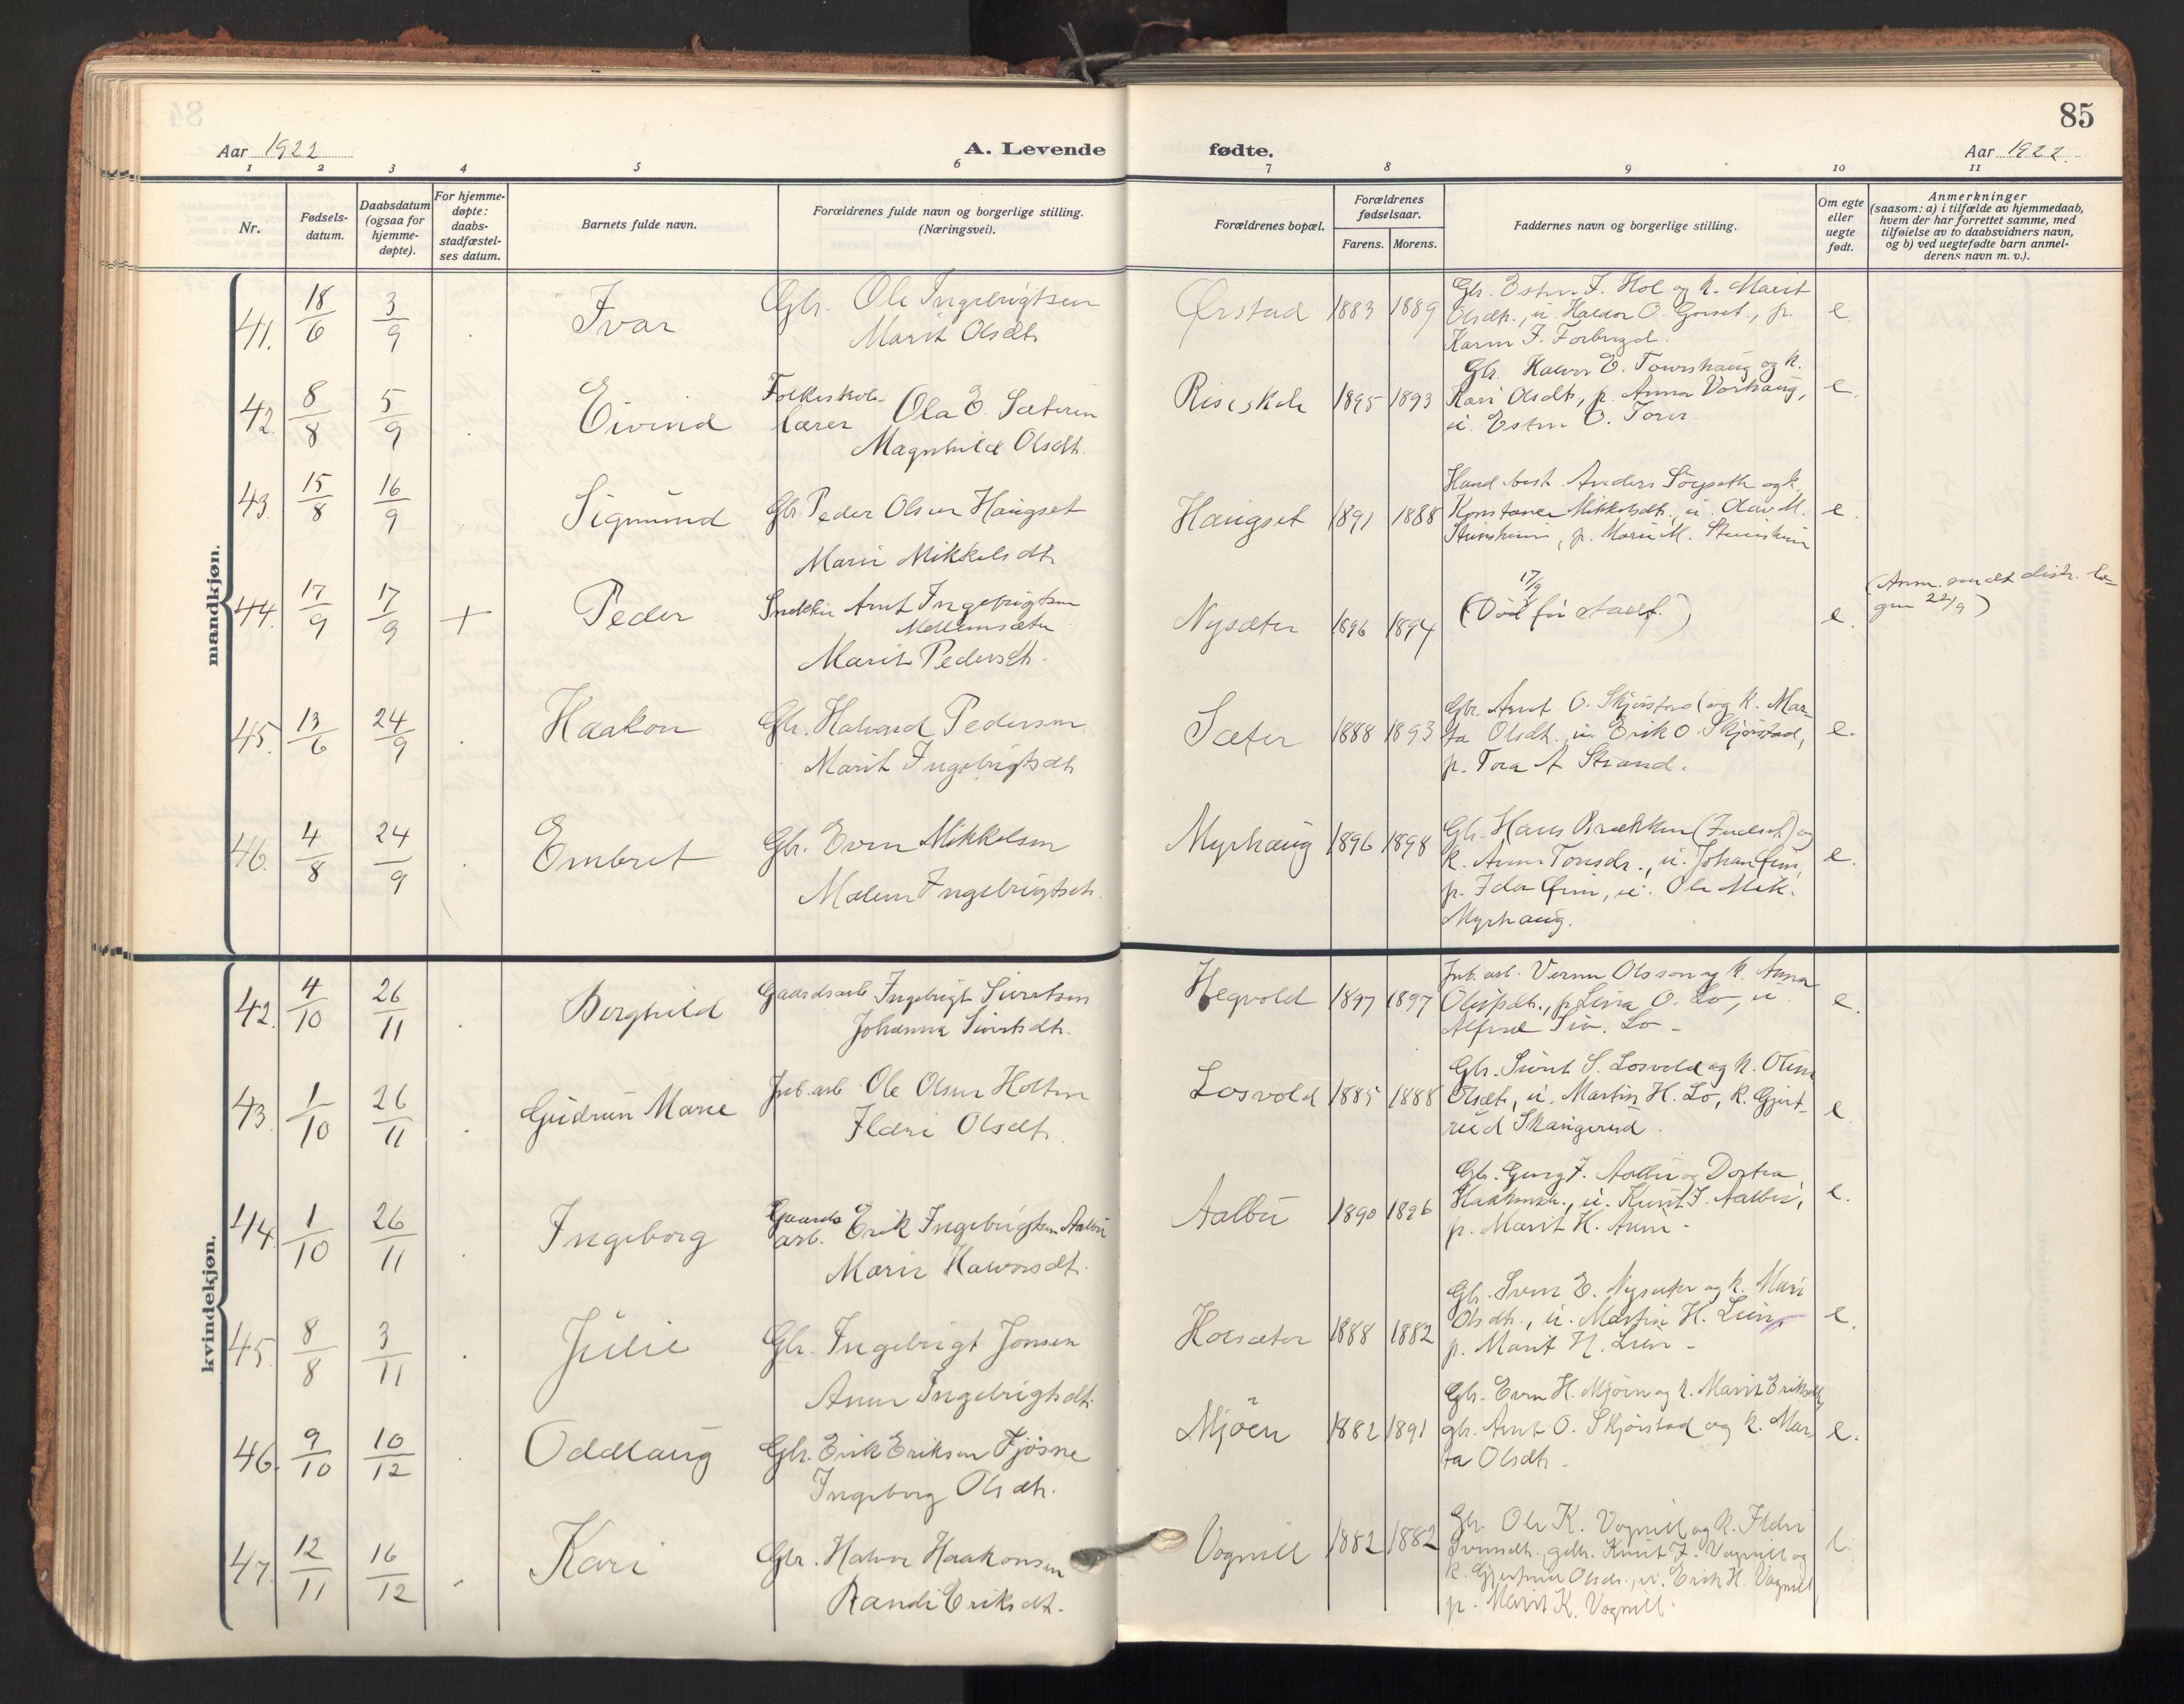 85
Aar 1922
A. Levende
fødte.
Aar 1922.
1 2 3 4 5 6 7 8 9 10 11
Nr.
Fødsels-
datum.
Daabsdatum
(ogsaa for
hjemme-
døpte).
For hjemme-
døpte:
daabs-
stadfæstel-
ses datum.
Barnets fulde navn.
Forældrenes fulde navn og borgerlige stilling.
(Næringsvei).
Forældrenes bopæl.
Forældrenes
fødselsaar.
Farens. Morens.
Faddernes navn og borgerlige stilling.
Om egte
eller
uegte
født.
Anmerkninger
(saasom: a) i tilfælde av hjemmedaab,
hvem der har forrettet samme, med
tilføielse av to daabsvidners navn,
og b) ved uegtefødte barn anmel-
derens navn m. v.).
mandkjøn.
41. 18/6 3/9 . Ivar
Gbr. Ole Ingebrigtsen
Marit Olsdtr.
Ørstad 1883 1889
Gbr. Esten I. Hol og k. Marit
Olsdtr., u. Haldor O. Gorset, p.
Karen I. Forbregd.
e.
42. 8/8 5/9 . Eivind
Folkeskole-
lærer Ola E. Sæteren
Magnhild Olsdtr.
Riseskole 1895 1893
Gbr. Halvor E. Tovershaug og k.
Kari Olsdtr., p. Anna Vorhaug,
u. Esten O.
e.
43. 15/8 16/9 Sigmund
Gbr. Peder Olsen Haugset
Marie Mikkelsdtr.
Haugset 1891 1888
Hand.best. Anders og k.
Konstance Mikkelsdtr., u. Olav M.
Steinsheim, p. Marie M. Steinsheim
e.
44. 17/9 17/9 + Peder
Snekker Arnt Ingebrigtsen
Mellemsæter
Marit Pedersdtr.
Nysæter 1896 1894
17/9
(Død før stadf.)
e.
(Anm. sendt distr. læ-
gen 22/9)
45. 13/6 24/9 . Haakon
Gbr. Halvard Pedersen
Marit Ingebrigtsdtr.
Sæter 1888 1893
Gbr. Arnt O. Skjørstad og k. Mar-
ta Olsdtr., u. Erik O. Skjørstad,
p. Tora A. Strand.
e.
46. 4/8 24/9 . Embret
Gbr. Even Mikkelsen
Malene Ingebrigtsdtr.
Myrhaug 1896 1898
Gbr. Hans Brækken (Indset) og
k. Anne Tonsdtr., u. Johan
p. Ida, u. Ole Mik.
Myrhaug.
e.
kvindekjøn.
42. 4/10 26/11 . Borghild
Gaardsarb. Ingebrigt Sivertsen
Johanna Sivertsdtr.
Hegvold 1897 1897
Jnb.arb. Verner Olsson og k. Anna
p. Lina O. Lo, u.
Alfred Siv. Lo -
e.
43. 1/10 26/11 . Gudrun Marie
Jnb.arb. Ole Olsen Holten
Ildri Olsdtr.
Losvold 1885 1888
Gbr. Sivert S. Losvold og k. Oline
Olsdtr., u. Martin H. Lo, k. Gjert-
rud Skaugerud.
e.
44. 1/10 26/11 . Ingeborg
Gaards
arb. Erik Ingebrigtsen Aalbu
Marie Halvorsdtr.
Aalbu 1890 1896
Gbr. I. Aalbu og Dortea
Haakonsdtr., u. Knut I. Aalbu,
p. Marit H. Aune -
e.
45. 8/8 3/11 . Julie
Gbr. Ingebrigt Jonsen
Anne Ingebrigtsdtr.
Holsæter 1888 1882
Gbr. Sven E. Nysæter og k. Mari
Olsdtr., u. Martin H. Lien,
p. Marit H. Lien -
e.
46. 9/10 10/12 . Oddlaug
Gbr. Erik Eriksen Fjøsne
Ingeborg Olsdtr.
Mjöen 1882 1891
Gbr. Even H. Mjøen og k. Marit Eriksdtr,
gbr. Arnt O. Skjørstad og k. Mar-
ta Olsdtr. -
e.
47. 12/11 16/12 . Kari
Gbr. Halvor Haakonsen
Randi Eriksdtr.
Vognill 1882 1882
Gbr. Ole K. Vognill og k. Ildri
Svensdtr. gbr. Knut I. Vognill og
k. Gjertrud Olsdtr., u. Erik H. Vognill,
p. Marit K. Vognill.
e.